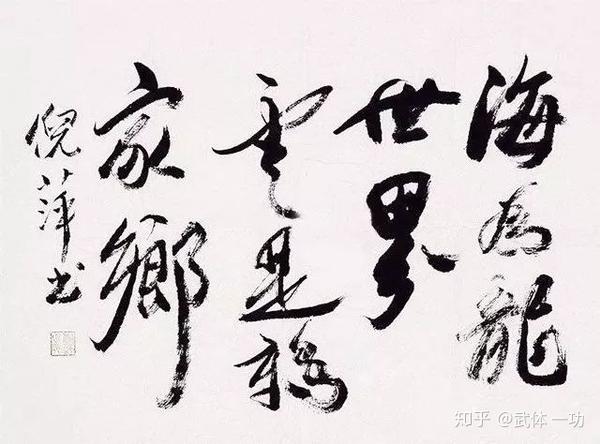 海為龍
世界
雲是鶴
家鄉
倪萍书
知乎 @武体一功